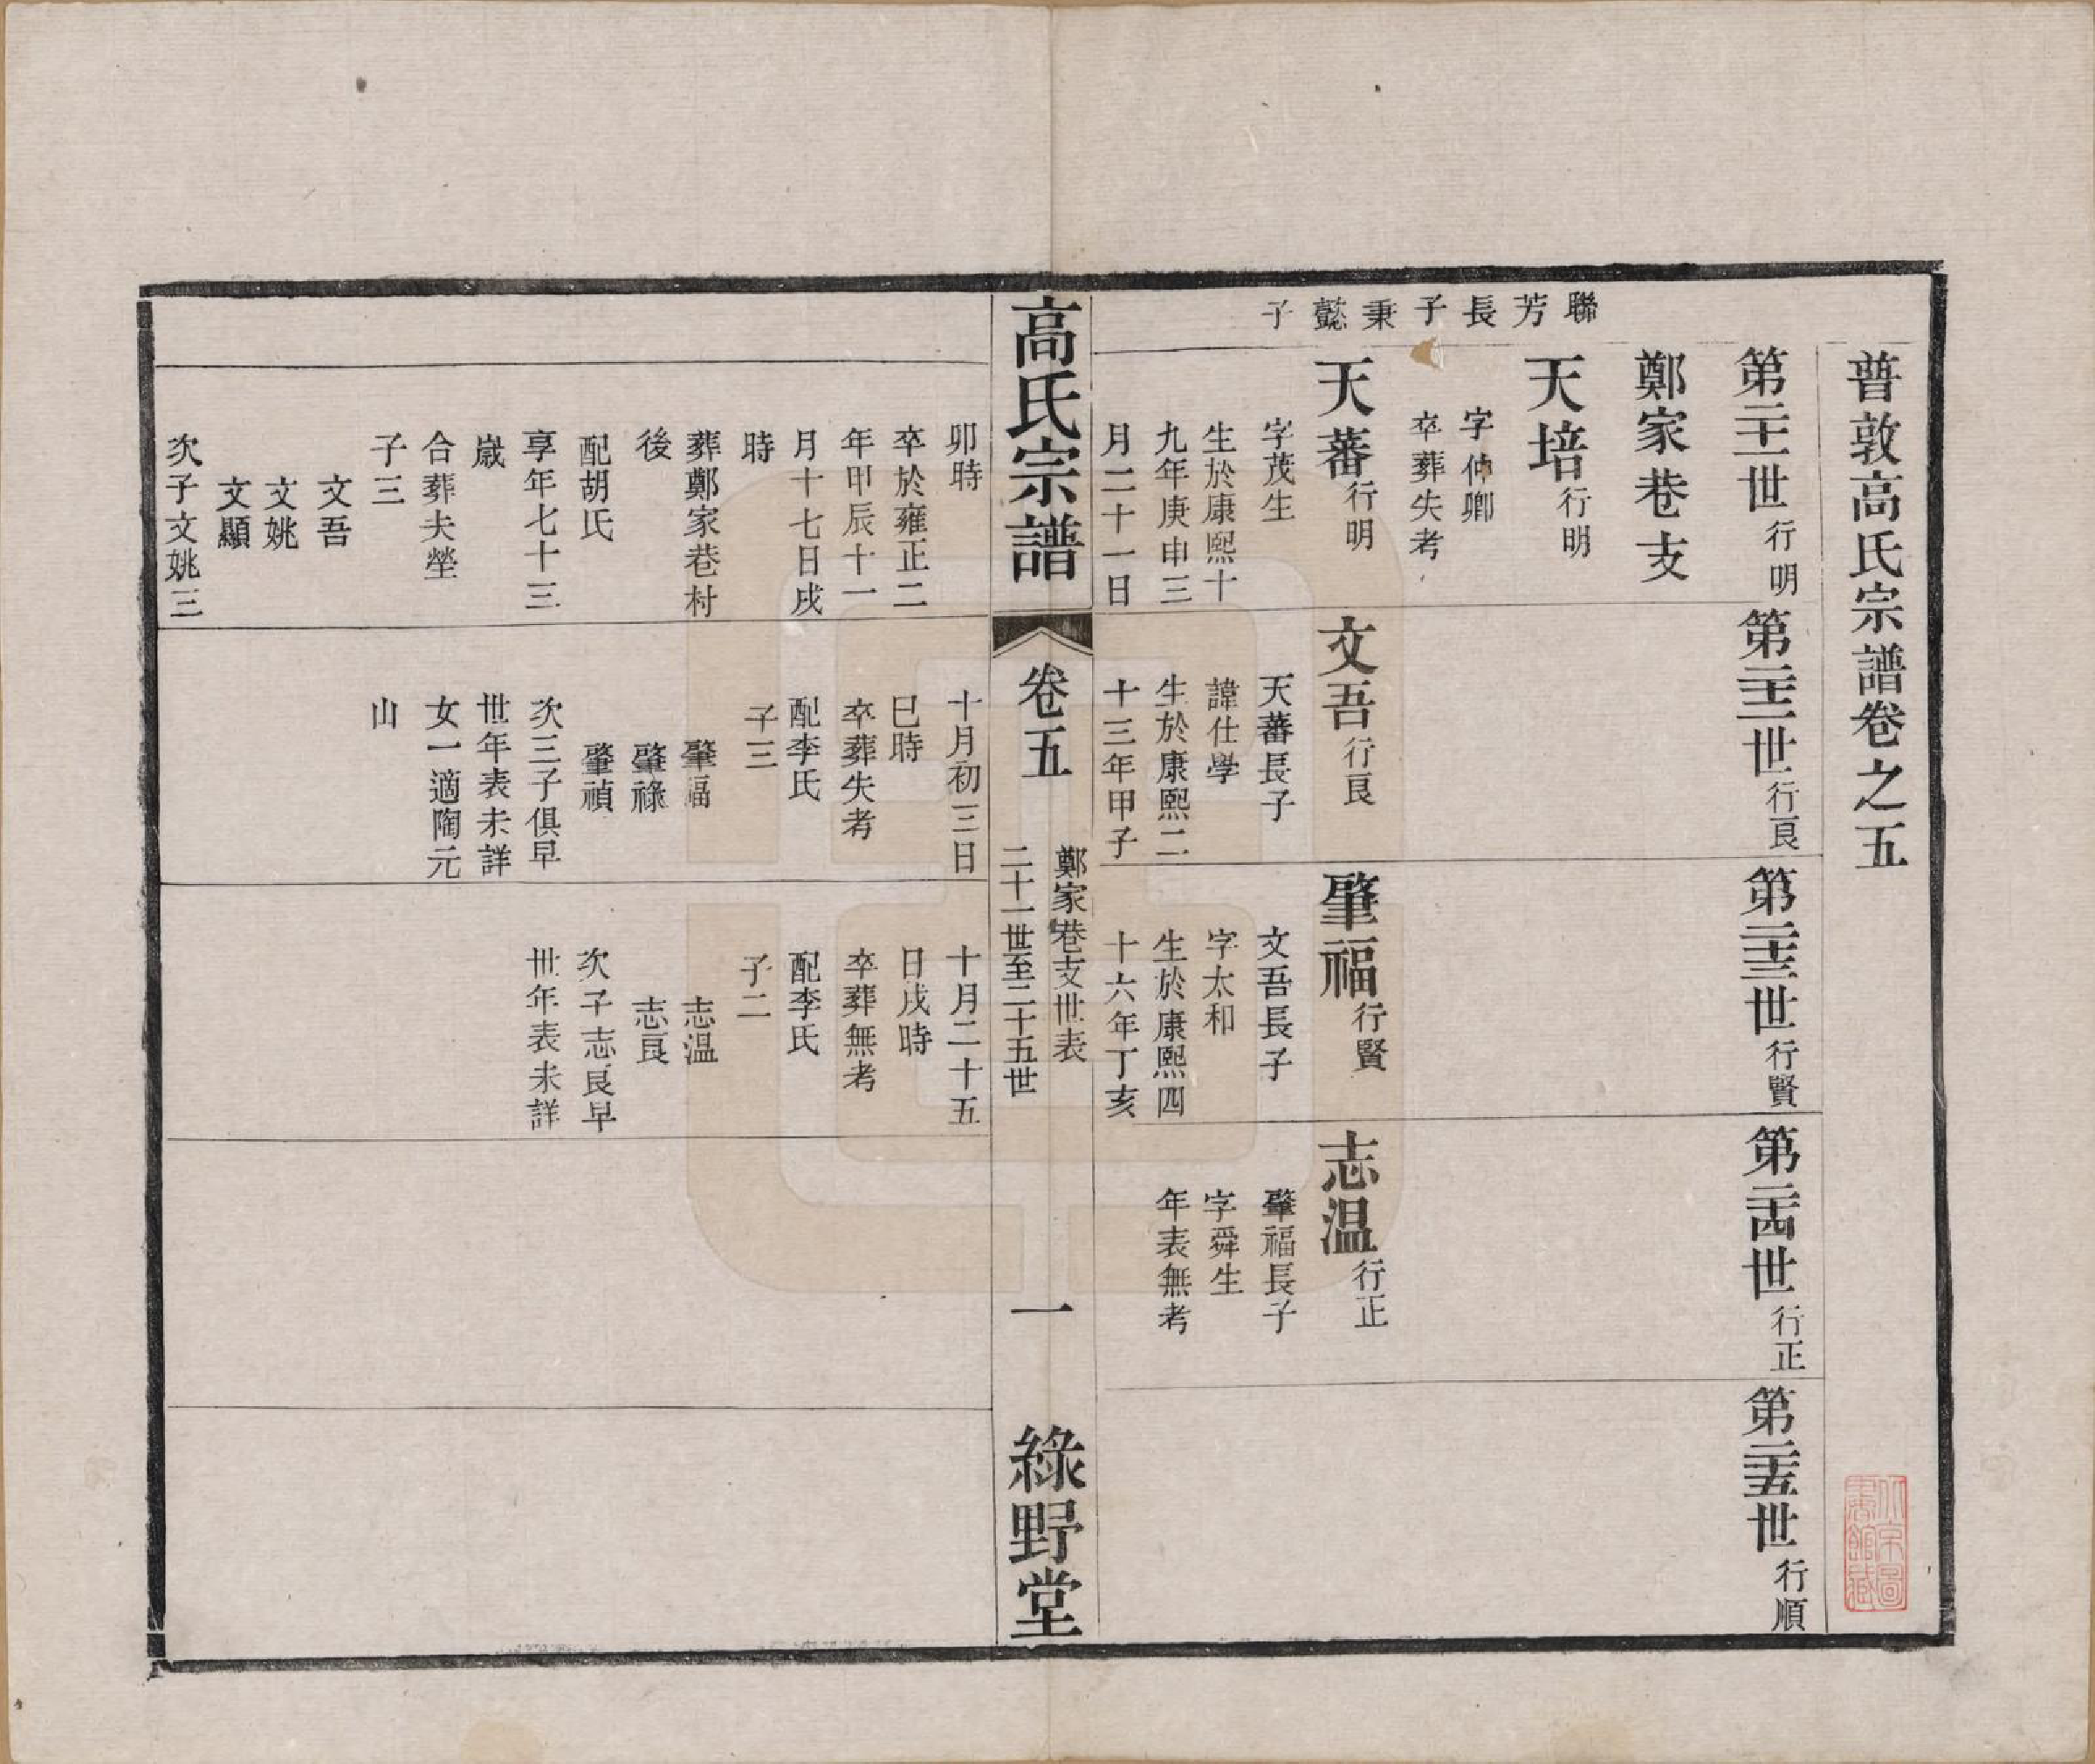 普敦高氏宗譜卷之五
第二十一世行明
第二十二世行良
第二十三世行賢
第二十四世行正
第二十五世行順
鄭家巷支
聯芳長子秉懿子
天培行明
字仲卿
卒葬失考
天蕃行明
字茂生
生於康熙十
九年庚申三
月二十一日
文吾行良
天蕃長子
諱仕學
生於康熙二
十三年甲子
肇福行賢
文吾長子
字太和
生於康熙四
十六年丁亥
志温行正
肇福長子
字舜生
年表無考
高氏宗譜
卷五
鄭家巷支世表
二十一世至二十五世
一
綠野堂
卯時
卒於雍正二
年甲辰十一
月十七日戌
時
葬鄭家巷村
後
配胡氏
享年七十三
歲
合葬夫塋
子三
文吾
文姚
文顯
次子文姚三
十月初三日
巳時
卒葬失考
配李氏
子三
肇福
肇祿
肇禎
次三子俱早
世年表未詳
女一適陶元
山
十月二十五
日戌時
卒葬無考
配李氏
子二
志温
志良
次子志良早
世年表未詳